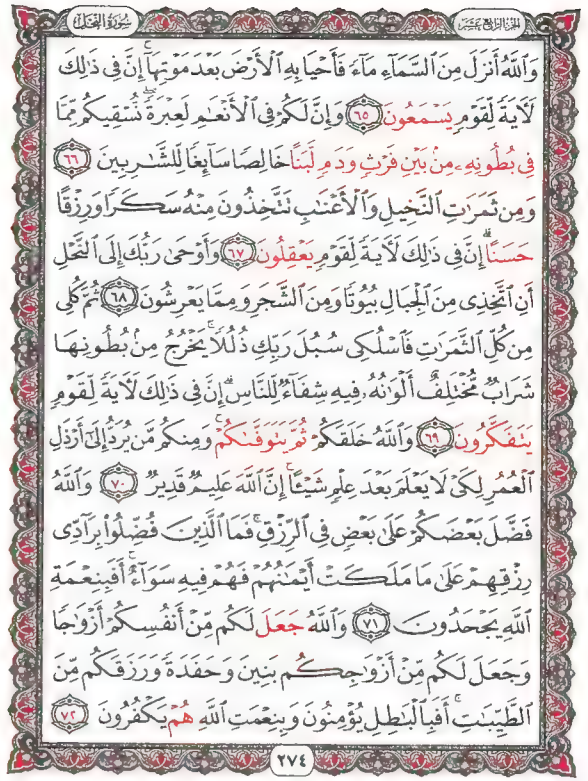 الجزء الرابع عشر
سورة النحل
وَٱللَّهُ أَنزَلَ مِنَ ٱلسَّمَآءِ مَآءً فَأَحْيَا بِهِ ٱلْأَرْضَ بَعْدَ مَوْتِهَآ ۚ إِنَّ فِى ذَٰلِكَ
لَـَٔايَةً لِّقَوْمٍ يَسْمَعُونَ ٦٥ وَإِنَّ لَكُمْ فِى ٱلْأَنْعَٰمِ لَعِبْرَةً ۖ نُّسْقِيكُم مِّمَّا
فِى بُطُونِهِۦ مِنۢ بَيْنِ فَرْثٍ وَدَمٍ لَّبَنًا خَالِصًا سَآئِغًا لِّلشَّٰرِبِينَ ٦٦
وَمِن ثَمَرَٰتِ ٱلنَّخِيلِ وَٱلْأَعْنَٰبِ تَتَّخِذُونَ مِنْهُ سَكَرًا وَرِزْقًا
حَسَنًا ۗ إِنَّ فِى ذَٰلِكَ لَـَٔايَةً لِّقَوْمٍ يَعْقِلُونَ ٦٧ وَأَوْحَىٰ رَبُّكَ إِلَى ٱلنَّحْلِ
أَنِ ٱتَّخِذِى مِنَ ٱلْجِبَالِ بُيُوتًا وَمِنَ ٱلشَّجَرِ وَمِمَّا يَعْرِشُونَ ٦٨ ثُمَّ كُلِى
مِن كُلِّ ٱلثَّمَرَٰتِ فَٱسْلُكِى سُبُلَ رَبِّكِ ذُلُلًا ۚ يَخْرُجُ مِنۢ بُطُونِهَا
شَرَابٌ مُّخْتَلِفٌ أَلْوَٰنُهُۥ فِيهِ شِفَآءٌ لِّلنَّاسِ ۗ إِنَّ فِى ذَٰلِكَ لَـَٔايَةً لِّقَوْمٍ
يَتَفَكَّرُونَ ٦٩ وَٱللَّهُ خَلَقَكُمْ ثُمَّ يَتَوَفَّىٰكُمْ ۚ وَمِنكُم مَّن يُرَدُّ إِلَىٰٓ أَرْذَلِ
ٱلْعُمُرِ لِكَىْ لَا يَعْلَمَ بَعْدَ عِلْمٍ شَيْـًٔا ۚ إِنَّ ٱللَّهَ عَلِيمٌ قَدِيرٌ ٧٠ وَٱللَّهُ
فَضَّلَ بَعْضَكُمْ عَلَىٰ بَعْضٍ فِى ٱلرِّزْقِ ۚ فَمَا ٱلَّذِينَ فُضِّلُوا۟ بِرَآدِّى
رِزْقِهِمْ عَلَىٰ مَا مَلَكَتْ أَيْمَٰنُهُمْ فَهُمْ فِيهِ سَوَآءٌ ۚ أَفَبِنِعْمَةِ
ٱللَّهِ يَجْحَدُونَ ٧١ وَٱللَّهُ جَعَلَ لَكُم مِّنْ أَنفُسِكُمْ أَزْوَٰجًا
وَجَعَلَ لَكُم مِّنْ أَزْوَٰجِكُم بَنِينَ وَحَفَدَةً وَرَزَقَكُم مِّنَ
ٱلطَّيِّبَٰتِ ۚ أَفَبِٱلْبَٰطِلِ يُؤْمِنُونَ وَبِنِعْمَتِ ٱللَّهِ هُمْ يَكْفُرُونَ ٧٢
٢٧٤